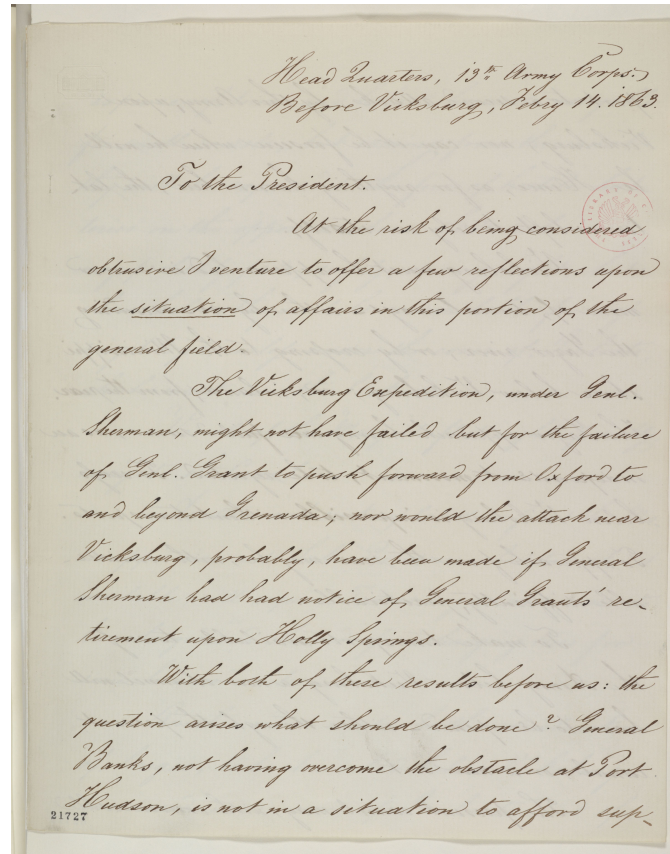 Head Quarters, 13th Army Corps.
Before Vicksburg, Febry 14. 1863.
To the President.
At the risk of being considered
obtrusive I venture to offer a few reflections upon
the situation of affairs in this portion of the
general field.
The Vicksburg Expedition, under Genl.
Sherman, might not have failed but for the failure
of Genl. Grant to push forward from Oxford to
and beyond Grenada; nor would the attack near
Vicksburg, probably, have been made if General
Sherman had had notice of General Grant's re-
tirement upon Holly Springs.
With both of these results before us: the
question arises what should be done? General
Banks, not having overcome the obstacle at Port
Hudson, is not in a situation to afford sup-
21727